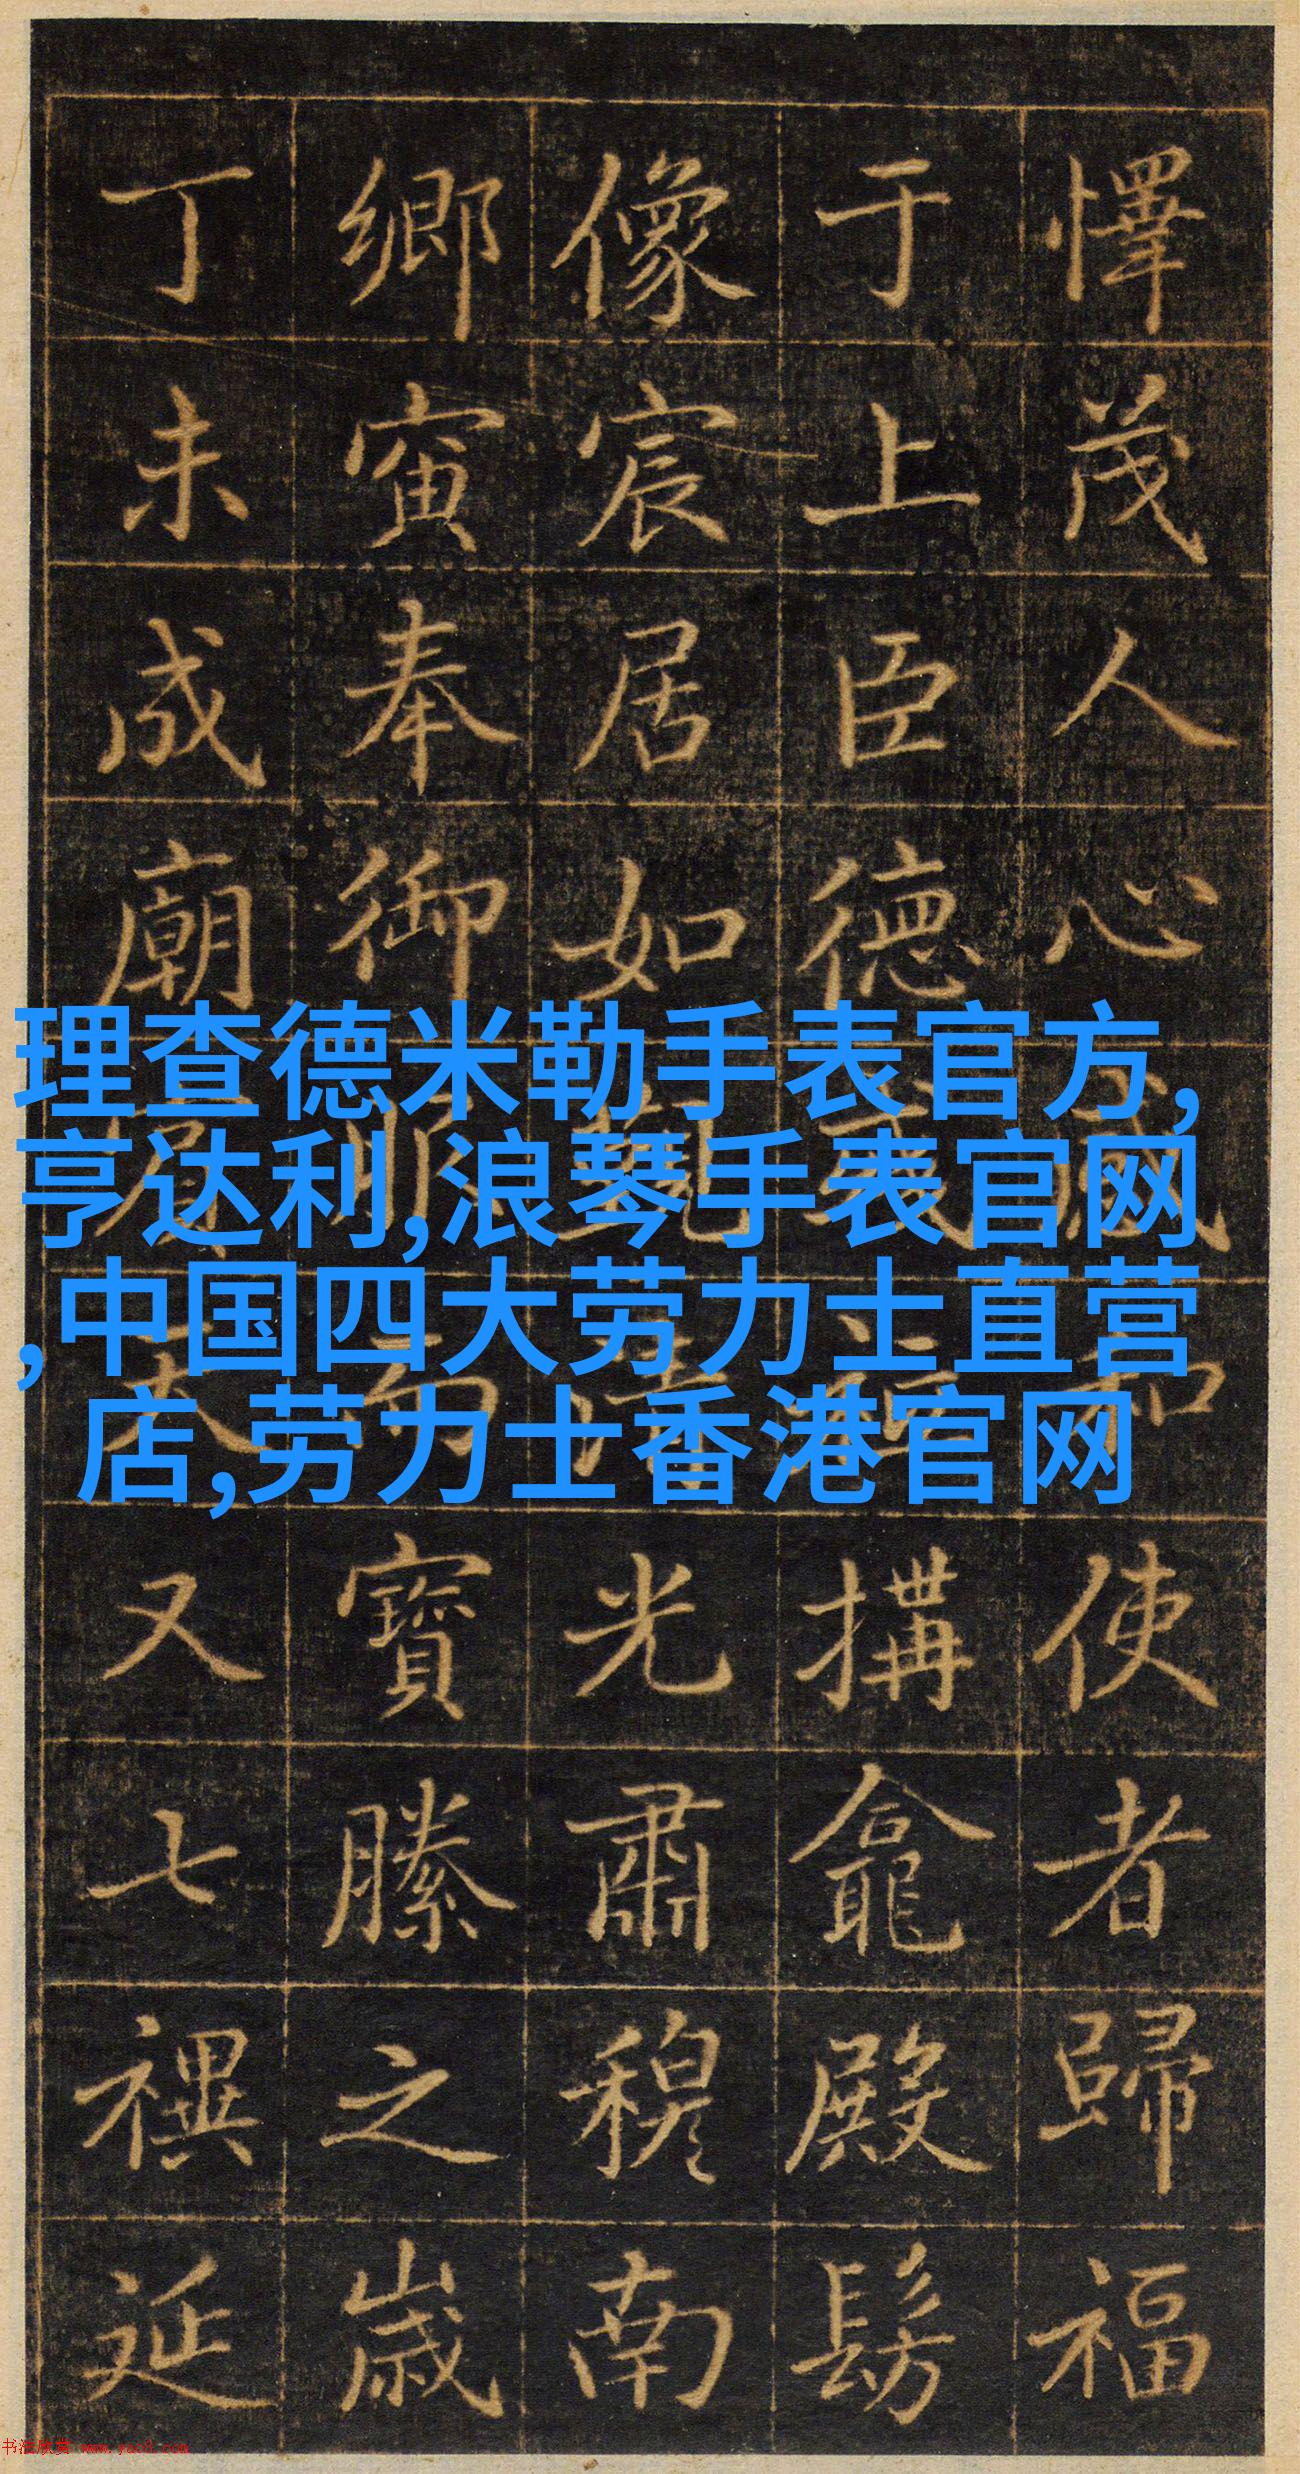 懌茂人心和使者歸福
于上臣德搆龕殿髣
像宸居如光肅穆南
鄉寅奉御寶縢之歲
丁未成廟又七禩延
理查德米勒手表官方,
亨达利,浪琴手表官网
,中国四大劳力士直营
店,劳力士香港官网
书法欣赏 www.yac8.com